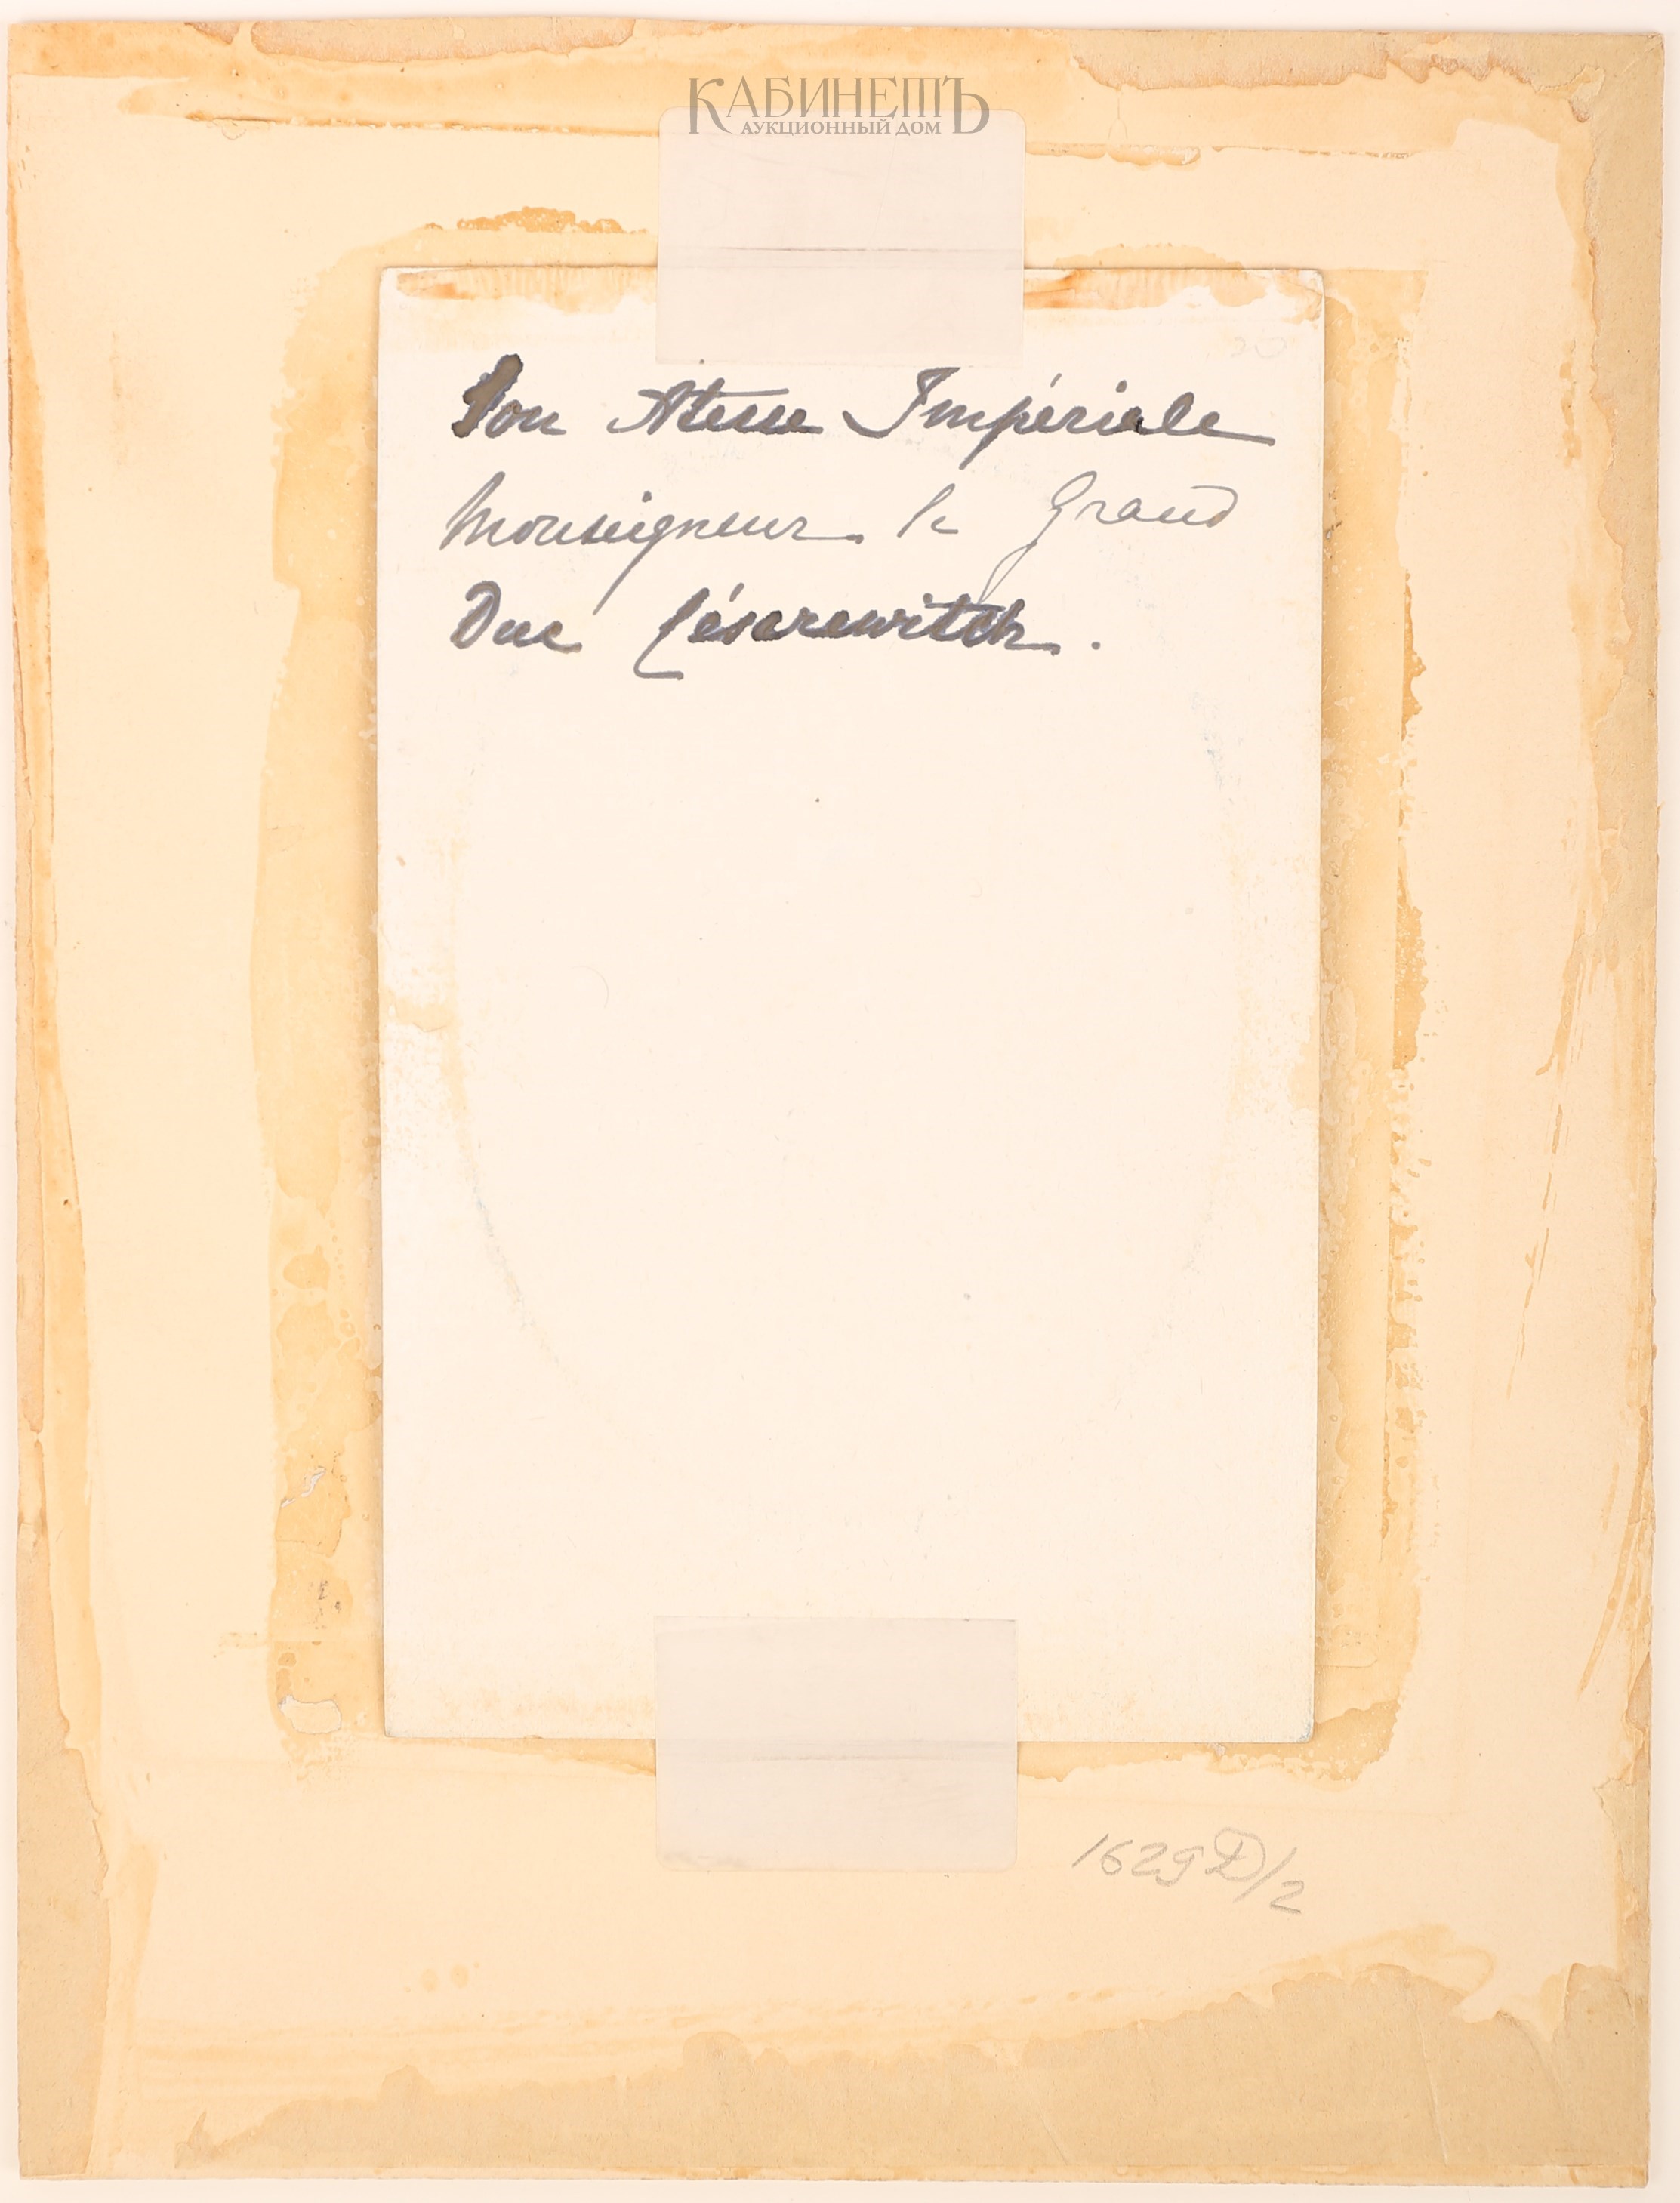 КАБИНЕТЪ
АУКЦИОННЫЙ ДОМ
Son Atesse Impériale
Monseigneur le Grand
Duc Césarewitch.
1629D/2